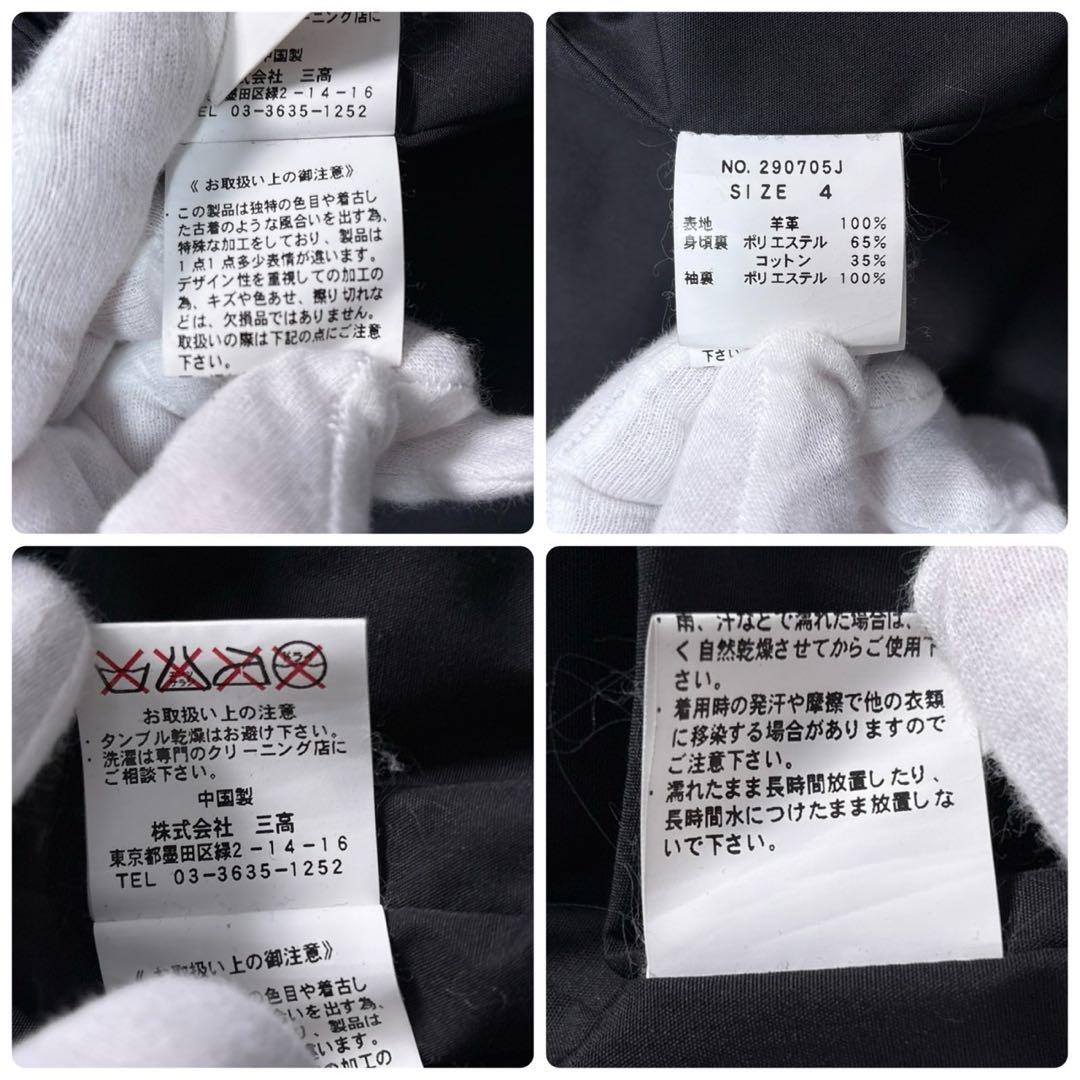 ニング店に
中国製
式会社 三高
墨田区緑2-14-16
TEL 03-3635-1252
《 お取扱い上の御注意》
・この製品は独特の色目や着古し
た古着のような風合いを出す為、
特殊な加工をしており、製品は
1点1点多少表情が違います。
デザイン性を重視しての加工の
為、キズや色あせ、擦り切れな
どは、欠損品ではありません。
取扱いの際は下記の点にご注意
下さい。
NO. 290705J
SIZE 4
表地 羊革 100%
身頃裏 ポリエステル 65%
コットン 35%
袖裏 ポリエステル 100%
下さい
お取扱い上の注意
・タンブル乾燥はお避け下さい。
・洗濯は専門のクリーニング店に
ご相談下さい。
中国製
株式会社 三高
東京都墨田区緑2-14-16
TEL 03-3635-1252
《 お取扱い上の御注意》
の色目や着古し
いを出す為、
、製品は
違います。
の加工の
・雨、汗などで濡れた場合は、
く自然乾燥させてからご使用下
さい。
・着用時の発汗や摩擦で他の衣類
に移染する場合がありますので
ご注意下さい。
・濡れたまま長時間放置したり、
長時間水につけたまま放置しな
いで下さい。